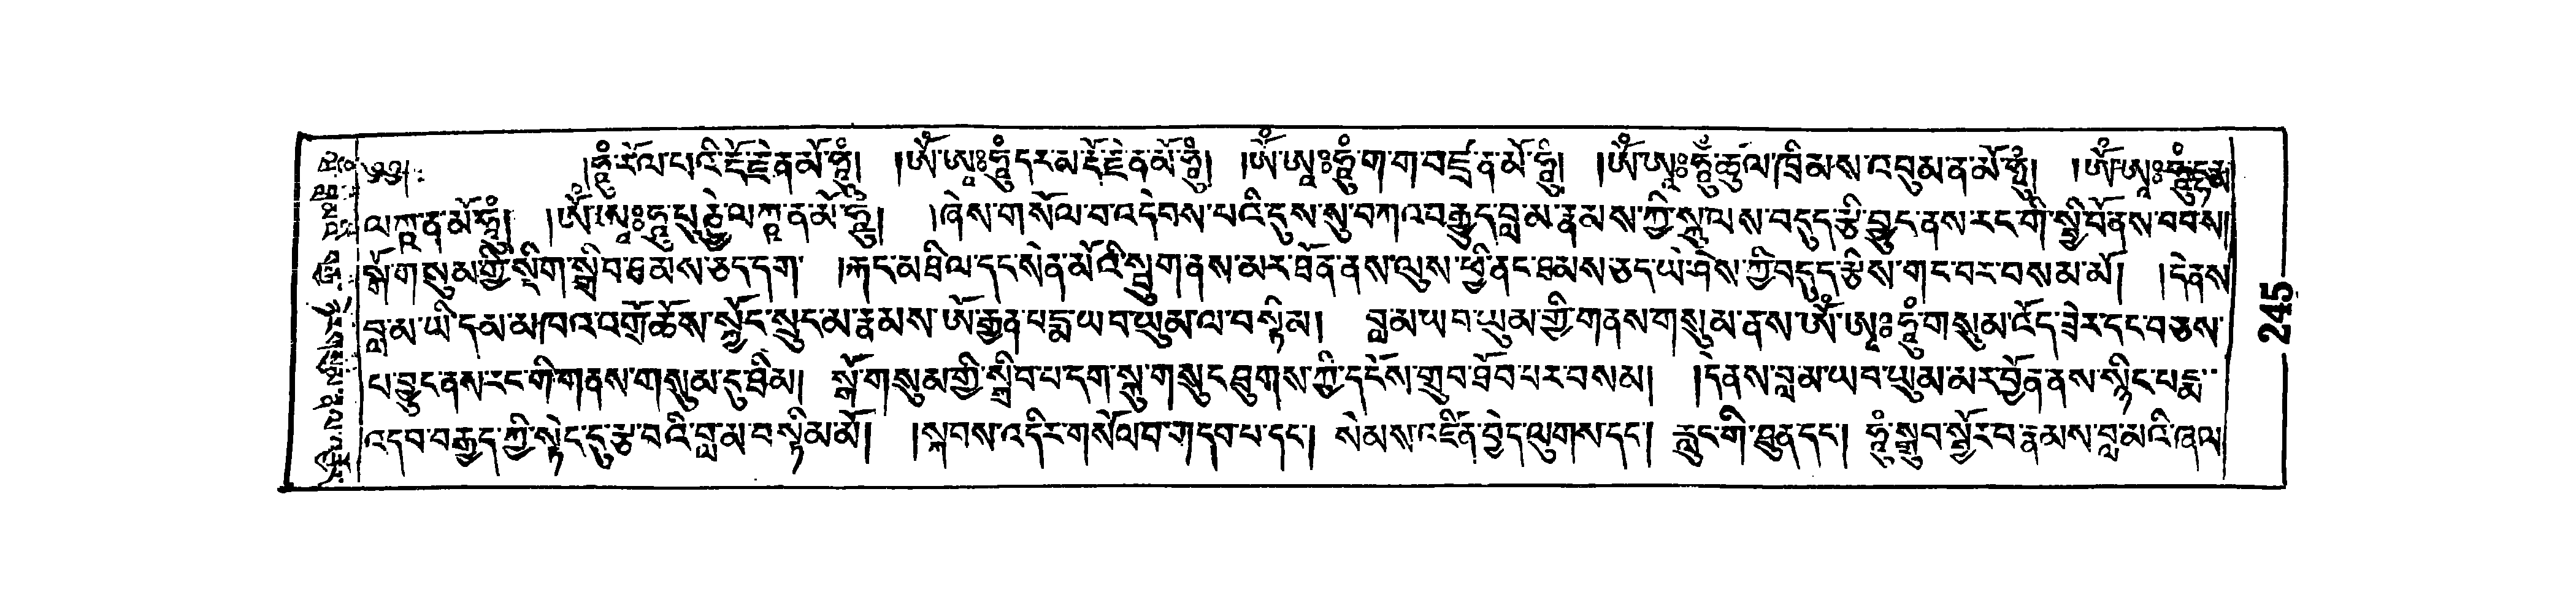 ༄༅། །ཧཱུྃ་རོལ་པའི་རྡོ་རྗེ་ན་མོ་ཧཱུྃ། །ཨོཾ་ཨཱཿཧཱུྃ་དར་མ་རྡོ་རྗེ་ན་མོ་ཧཱུྃ། །ཨོཾ་ཨཱཿཧཱུྃ་ག་ག་བཛྲ་ན་མོ་ཧཱུྃ། །ཨོཾ་ཨཱཿཧཱུྃ་ཚུལ་ཁྲིམས་འབུམ་ན་མོ་ཧཱུྃ། །ཨོཾ་ཨཱཿ
ན་མོ་ཧཱུྃ། །ཨོཾ་ཨཱཿཧཱུྃ་ ན་མོ་ཧཱུྃ། །ཞེས་གསོལ་བ་འདེབས་པའི་དུས་སུ་བཀའ་བརྒྱུད་བླ་མ་རྣམས་ཀྱི་སྐུ་ལས་བདུད་རྩི་བྱུང་ནས་རང་གི་སྤྱི་བོ་ནས་བབས།
སྒོ་གསུམ་གྱི་སྡིག་སྒྲིབ་ཐམས་ཅད་དག །རྐང་མཐིལ་དང་སེན་མོའི་སྦུག་ནས་མར་ཐོན་ནས་ལུས་ཕྱི་ནང་ཐམས་ཅད་ཡེ་ཤེས་ཀྱི་བདུད་རྩིས་གང་བར་བསམ་མོ། །དེ་ནས
བླ་མ་ཡི་དམ་མཁའ་འགྲོ་ཆོས་སྐྱོང་སྲུང་མ་རྣམས་ཨོ་རྒྱན་པདྨ་ཡབ་ཡུམ་ལ་བསྟིམ། བླ་མ་ཡབ་ཡུམ་གྱི་གནས་གསུམ་ནས་ཨོཾ་ཨཱཿཧཱུྃ་གསུམ་འོད་ཟེར་དང་བཅས་
པ་བྱུང་ནས་རང་གི་གནས་གསུམ་དུ་ཐིམ། སྒོ་གསུམ་གྱི་སྒྲིབ་པ་དག་སྐུ་གསུང་ཐུགས་ཀྱི་དངོས་གྲུབ་ཐོབ་པར་བསམ། །དེ་ནས་བླ་མ་ཡབ་ཡུམ་མར་བྱོན་ནས་སྙིང་པདྨ་
འདབ་བརྒྱད་ཀྱི་སྟེང་དུ་རྩ་བའི་བླ་མ་བསྟིམ་མོ། །སྐབས་འདིར་གསོལ་བ་གདབ་པ་དང༌། སེམས་འཛིན་བྱེད་ལུགས་དང༌། རླུང་གི་ཐུན་དང༌། ཧཱུྃ་སྒྲུབ་སྦྱོར་བ་རྣམས་བླ་མའི་ཞལ